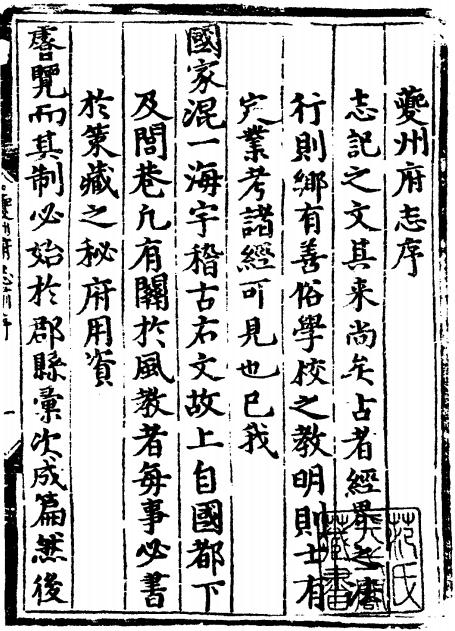 夔州府志序
志記之文其来尚矣古者經界之法
行則鄉有善俗學校之教明則士有
定業考諸經可見也已我
國家混一海宇稽古右文故上自國都下
及閭巷凡有關於風教者每事必書
於策藏之秘府用資
睿覽而其制必始於郡縣彙次成篇然後
夔州府志序
一
范氏